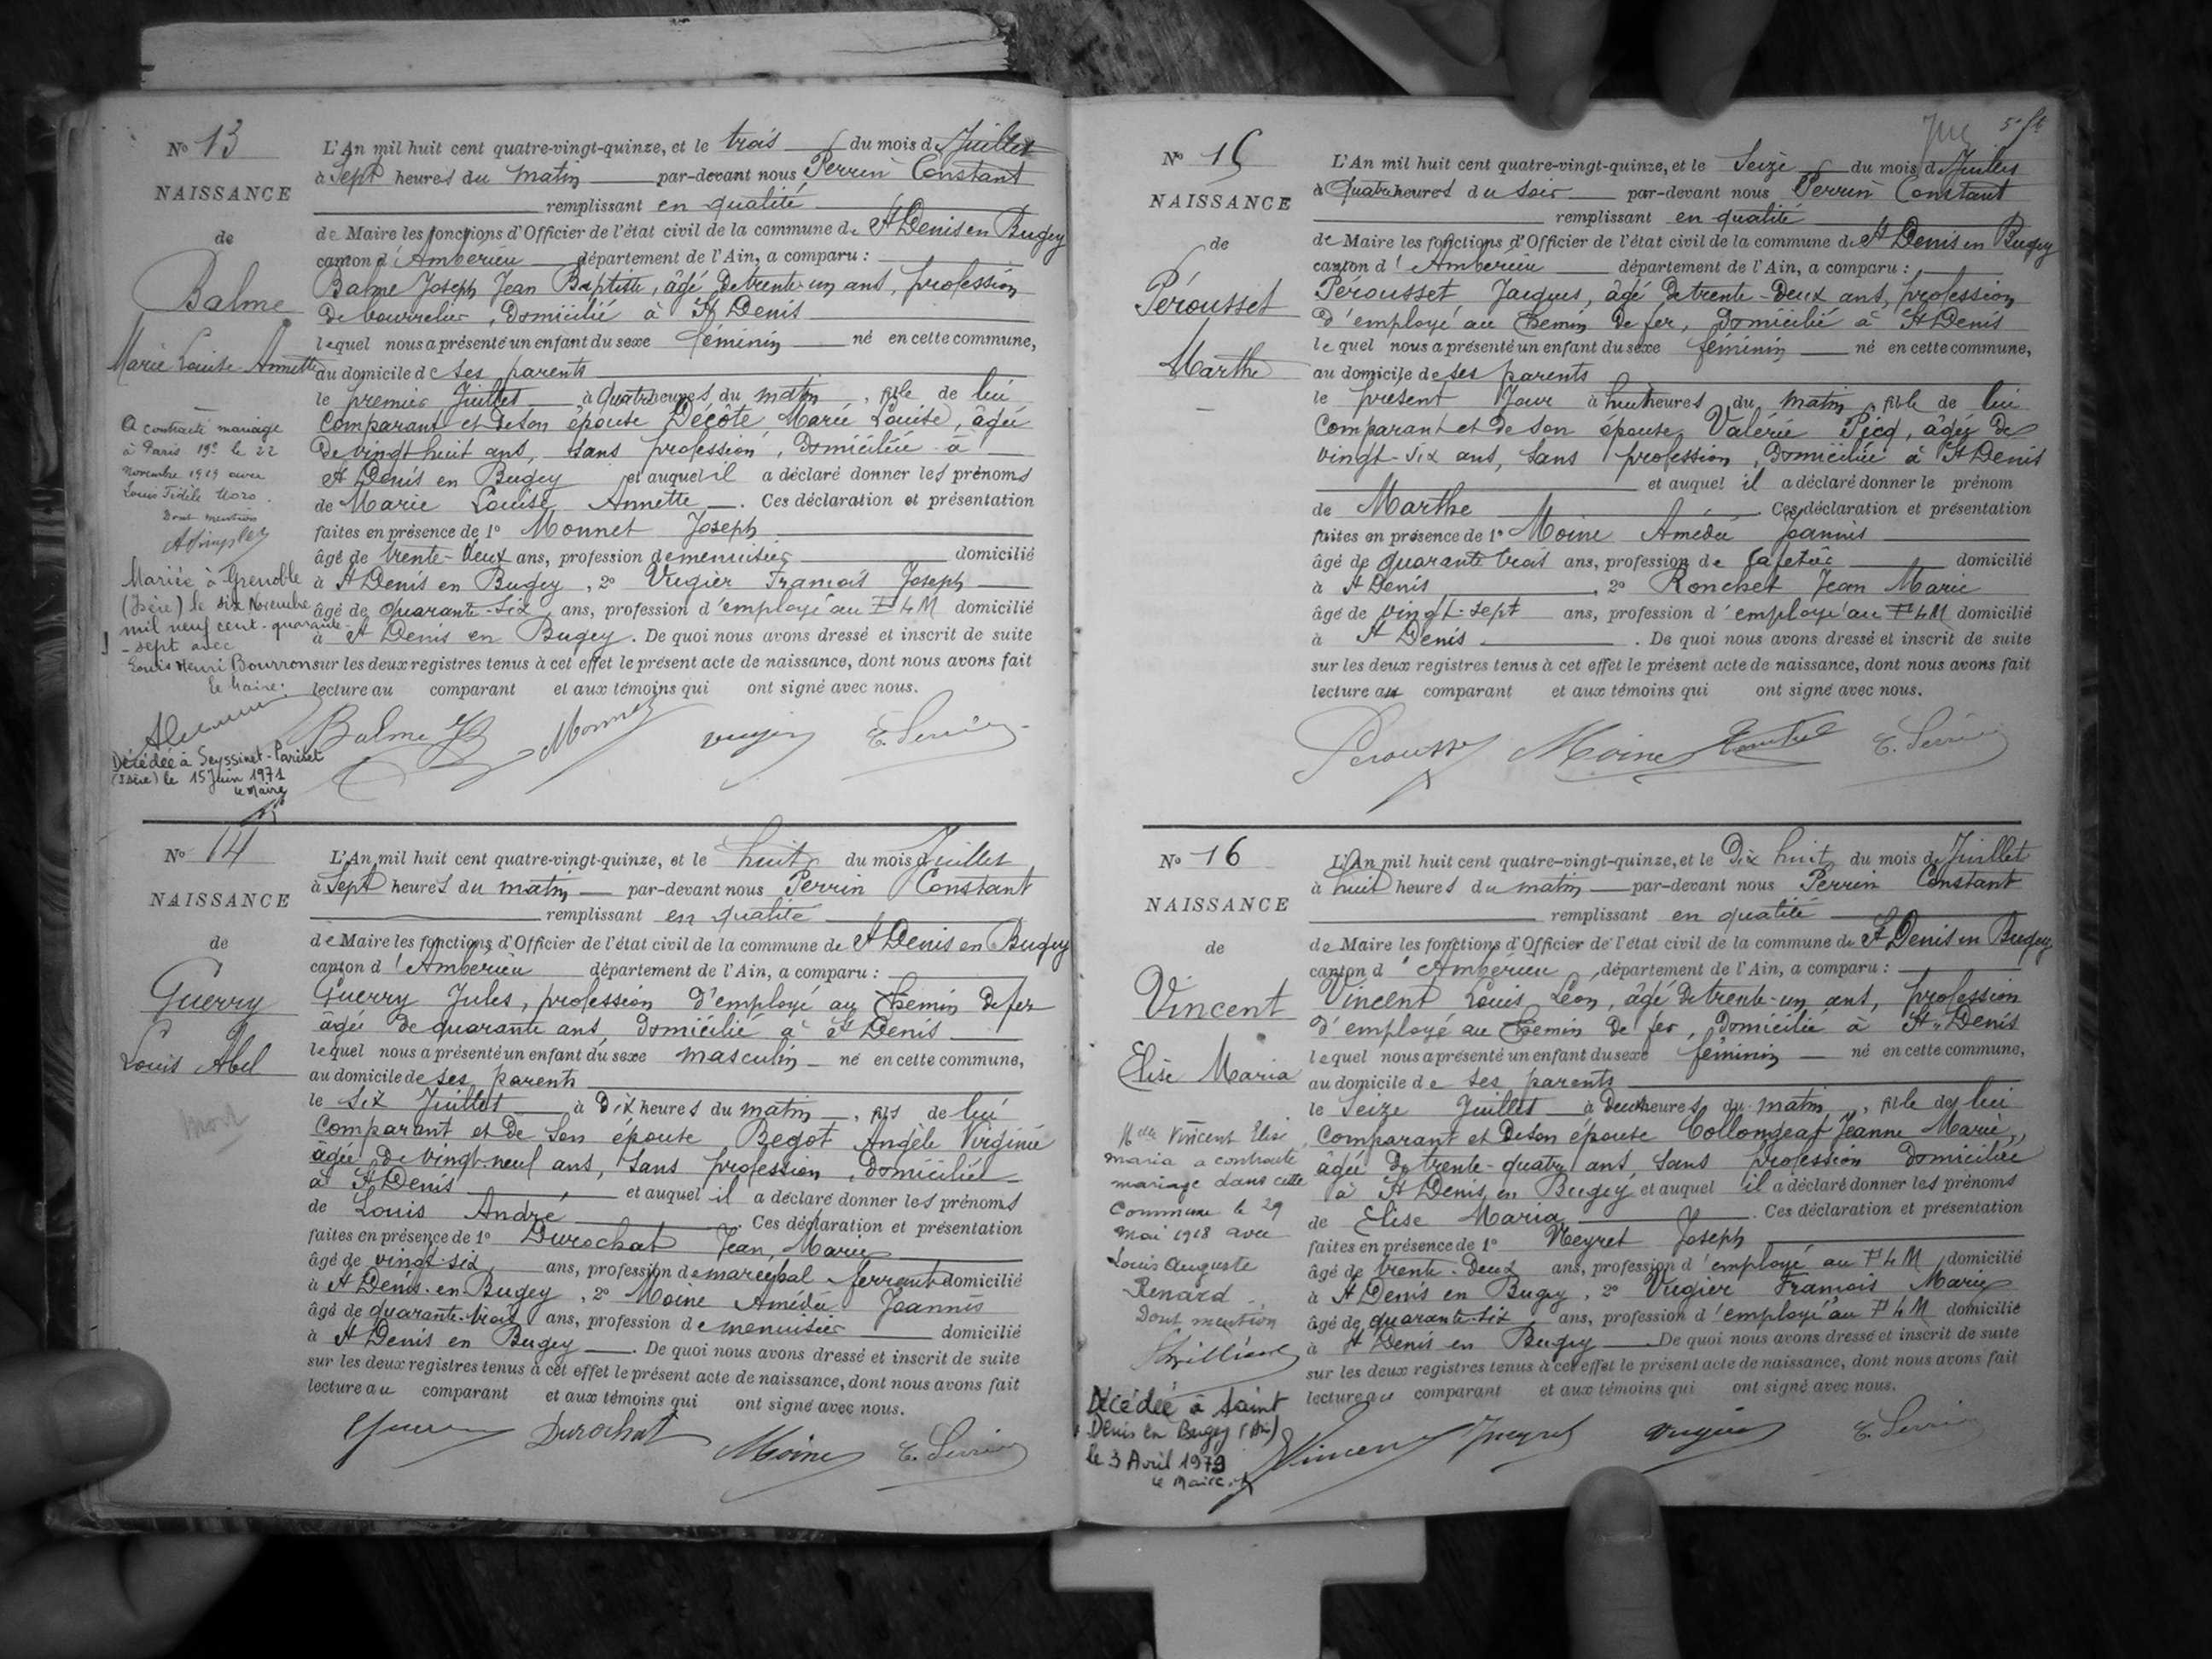 Nº 13
NAISSANCE
de
Balme
Marie Louise Annette
A contracté mariage
à Paris 19e le 22
novembre 1919 avec
Louis Fidèle
Dont mention
Mariée à Grenoble
(Isère) le six Novembre
mil neuf cent quarante
-sept avec
Louis Henri Bourron
le Maire:
Décédée à Seyssinet-Pariset
(Isère) le 15 Juin 1971
le Maire
L'An mil huit cent quatre-vingt-quinze, et le trois du mois de Juillet
à Sept heures du matin par-devant nous Perrin Constant
remplissant en qualité
de Maire les fonctions d'Officier de l'état civil de la commune de St Denis en Bugey
canton d'Ambérieu département de l'Ain, a comparu :
Balme Joseph Jean Baptiste, âgé de trente-un ans, profession
de bourrelier, domicilié à St Denis
lequel nous a présenté un enfant du sexe féminin né en cette commune,
au domicile de ses parents
le premier Juillet à quatre heures du matin, fille de lui
comparant et de son épouse Décôte Marie Louise, âgée
de vingt huit ans, sans profession, domiciliée à
St Denis en Bugey et auquel il a déclaré donner les prénoms
de Marie Louise Annette. Ces déclaration et présentation
faites en présence de 1º Monnet Joseph
âgé de trente-deux ans, profession de menuisier domicilié
à St Denis en Bugey, 2º Vugier Francois Joseph
âgé de quarante-six ans, profession d'employé au PLM domicilié
à St Denis en Bugey. De quoi nous avons dressé et inscrit de suite
sur les deux registres tenus à cet effet le présent acte de naissance, dont nous avons fait
lecture au comparant et aux témoins qui ont signé avec nous.
Balme JB Monnet Vugier
Nº 14
NAISSANCE
de
Guerry
Louis Abel
Mort
L'An mil huit cent quatre-vingt-quinze, et le huit du mois d Juillet
à Sept heures du matin par-devant nous Perrin Constant
remplissant en qualité
de Maire les fonctions d'Officier de l'état civil de la commune de St Denis en Bugey
canton d'Ambérieu département de l'Ain, a comparu :
Guerry Jules, profession d'employé au Chemin de fer
âgée de quarante ans, domicilié à St Denis
lequel nous a présenté un enfant du sexe masculin né en cette commune,
au domicile de ses parents
le six Juillet à Dix heures du matin, fils de lui
comparant et de son épouse Begot Angèle Virginie
âgée de vingt-neuf ans, sans profession, domiciliée
à St Denis et auquel il a déclaré donner les prénoms
de Louis André. Ces déclaration et présentation
faites en présence de 1º Durochat Jean Marie
âgé de vingt-six ans, profession de marechal ferrant domicilié
à St Denis en Bugey, 2º Moine Amédée Joannis
âgé de quarante-trois ans, profession de menuisier domicilié
à St Denis en Bugey. De quoi nous avons dressé et inscrit de suite
sur les deux registres tenus à cet effet le présent acte de naissance, dont nous avons fait
lecture au comparant et aux témoins qui ont signé avec nous.
Durochat Moine
Nº 15
NAISSANCE
de
Pérousset
Marthe
L'An mil huit cent quatre-vingt-quinze, et le Seize du mois de Juillet
à Quatre heures du soir par-devant nous Perrin Constant
remplissant en qualité
de Maire les fonctions d'Officier de l'état civil de la commune de St Denis en Bugey
canton d'Ambérieu département de l'Ain, a comparu :
Pérousset Jacques, âgé de trente-deux ans, profession
d'employé au Chemin de fer, domicilié à St Denis
lequel nous a présenté un enfant du sexe féminin né en cette commune,
au domicile de ses parents
le présent Jour à huit heures du matin, fille de lui
comparant et de son épouse Valérie Picq, âgée de
vingt-six ans, sans profession, domiciliée à St Denis
et auquel il a déclaré donner le prénom
de Marthe Ces déclaration et présentation
faites en présence de 1º Moine Amédée Joannis
âgé de quarante trois ans, profession de cafetier domicilié
à St Denis, 2º Ronchet Jean Marie
âgé de vingt-sept ans, profession d'employé au PLM domicilié
à St Denis. De quoi nous avons dressé et inscrit de suite
sur les deux registres tenus à cet effet le présent acte de naissance, dont nous avons fait
lecture au comparant et aux témoins qui ont signé avec nous.
Perousset Moine
Nº 16
NAISSANCE
de
Vincent
Elise Maria
Melle Vincent Elise
maria a contracté
mariage dans cette
commune le 29
mai 1918 avec
Louis Auguste
Renard
Dont mention
Décédée à Saint
Denis en Bugey (Ain)
le 3 Avril 1973
le Maire
L'An mil huit cent quatre-vingt-quinze, et le Dix huit du mois de Juillet
à huit heures du matin par-devant nous Perrin Constant
remplissant en qualité
de Maire les fonctions d'Officier de l'état civil de la commune de St Denis en Bugey
canton d'Ambérieu, département de l'Ain, a comparu :
Vincent Louis Léon, âgé de trente-un ans, profession
d'employé au Chemin de fer, domicilié à St Denis
lequel nous a présenté un enfant du sexe féminin né en cette commune,
au domicile de ses parents
le Seize Juillet à Deux heures du matin, fille de lui
comparant et de son épouse Collongeat Jeanne Marie,
âgée de trente-quatre ans, sans profession domiciliée
à St Denis en Bugey et auquel il a déclaré donner les prénoms
de Elise Maria. Ces déclaration et présentation
faites en présence de 1º Neyret Joseph
âgé de trente-deux ans, profession d'employé au PLM domicilié
à St Denis en Bugey, 2º Vugier François Marie
âgé de quarante-six ans, profession d'employé au PLM domicilié
à St Denis en Bugey De quoi nous avons dressé et inscrit de suite
sur les deux registres tenus à cet effet le présent acte de naissance, dont nous avons fait
lecture au comparant et aux témoins qui ont signé avec nous.
Vincent Neyret Vugier